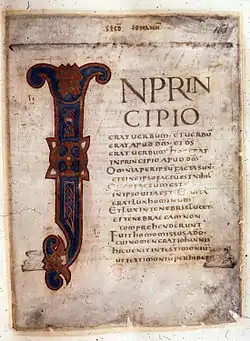 SECD IOHANN
INPRIN
CIPIO
ERAT UERBUM · ET UERBU
ERAT APUD DM · ET DS
ERAT UERBUM hOC ERAT
IN PRINCIPIO APUD DM
OMNIA PER IPSU FACTA SUNT
ET SINE IPSO FACTU EST NIhIL
FACTUM EST
IN IPSO UITA EST
ERAT LUX hOMINUM
ET LUX IN TENEBRIS LUCET
ET TENEBRAE EAM NON
COMPREhENDERUNT
FUIT hOMO MISSUS A DO
CUI NOMEN ERAT IOhANNIS
hIC UENIT IN TESTIMONIU
UT TESTIMONIU PERhIBER